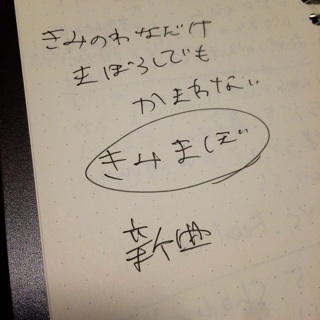 きみのわなだけ
まぼろしでも
かまわない
きみまぼ
新曲